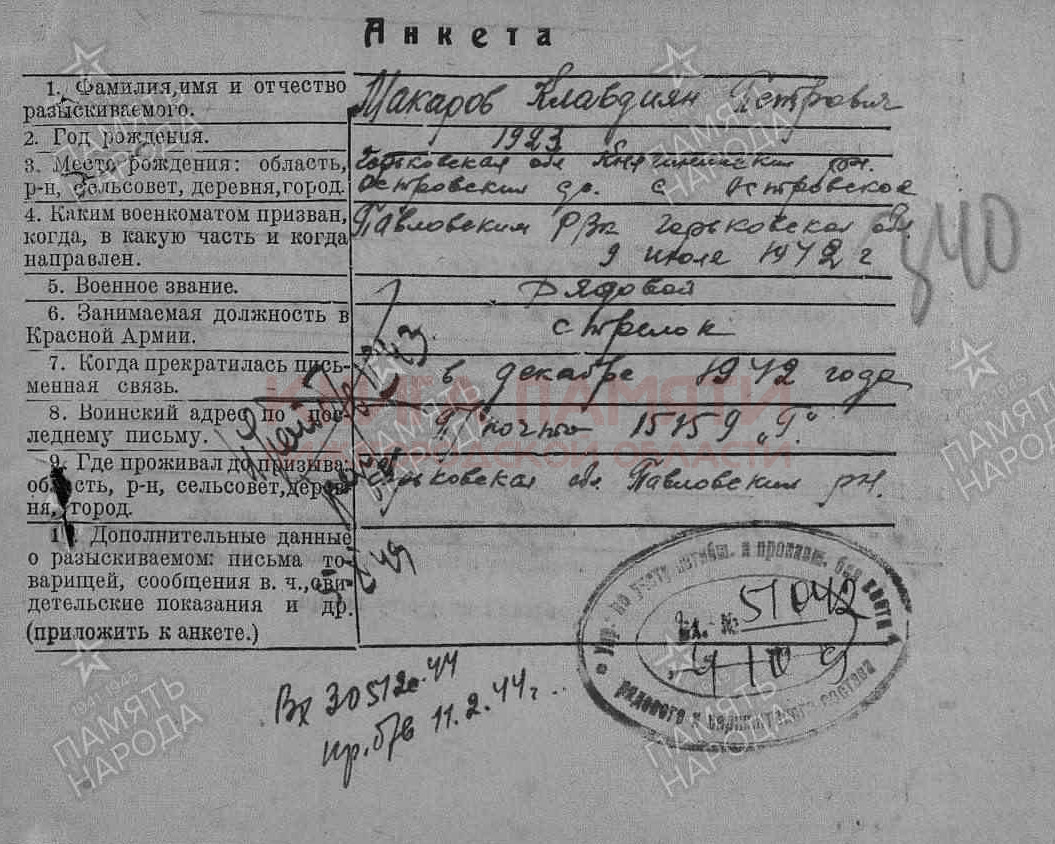 Анкета
1. Фамилия, имя и отчество разыскиваемого.
Макаров Клавдиян Петрович
2. Год рождения.
1923
3. Место рождения: область, р-н, сельсовет, деревня, город.
Горьковская обл Княгининский рн.
Островский с/с. с Островское
4. Каким военкоматом призван, когда, в какую часть и когда направлен.
Павловским РВК Горьковская обл.
9 июля 1942 г
5. Военное звание.
Рядовой
6. Занимаемая должность в Красной Армии.
стрелок
7. Когда прекратилась письменная связь.
в декабре 1942 года
8. Воинский адрес по последнему письму.
П/почта 15159 „Г“
9. Где проживал до призыва: область, р-н, сельсовет, деревня, город.
Горьковская обл. Павловский рн.
10. Дополнительные данные о разыскиваемом: письма товарищей, сообщения в. ч., свидетельские показания и др. (приложить к анкете.)
40
Вх 30512с-44
пр. б/в 11.2.44г.
Упр. по учету погибш. и пропавш. без вести
Вх. № 51042
рядового и сержантского состава
КНИГА ПАМЯТИ
НИЖЕГОРОДСКОЙ ОБЛАСТИ
ПАМЯТЬ НАРОДА
1941-1945